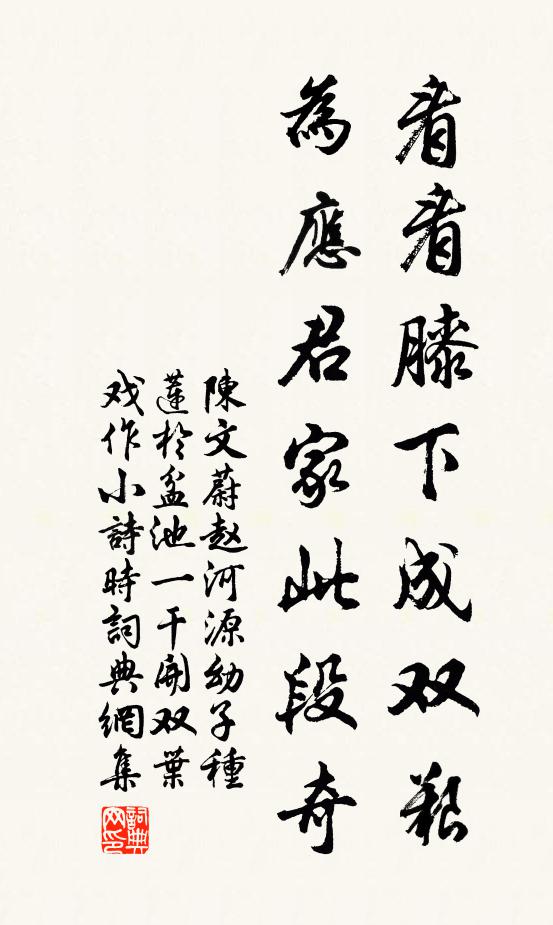 看看膝下成双艱
為應君家此段奇
陳文蔚赵河源幼子種
蓮於盆池一干開双葉
戏作小詩時詞典網集
詞典网印